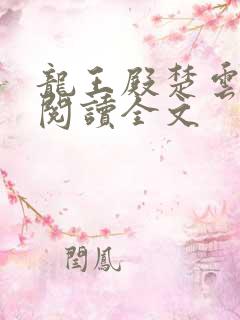 龍王殿楚雲
閱讀全文
閆鳳